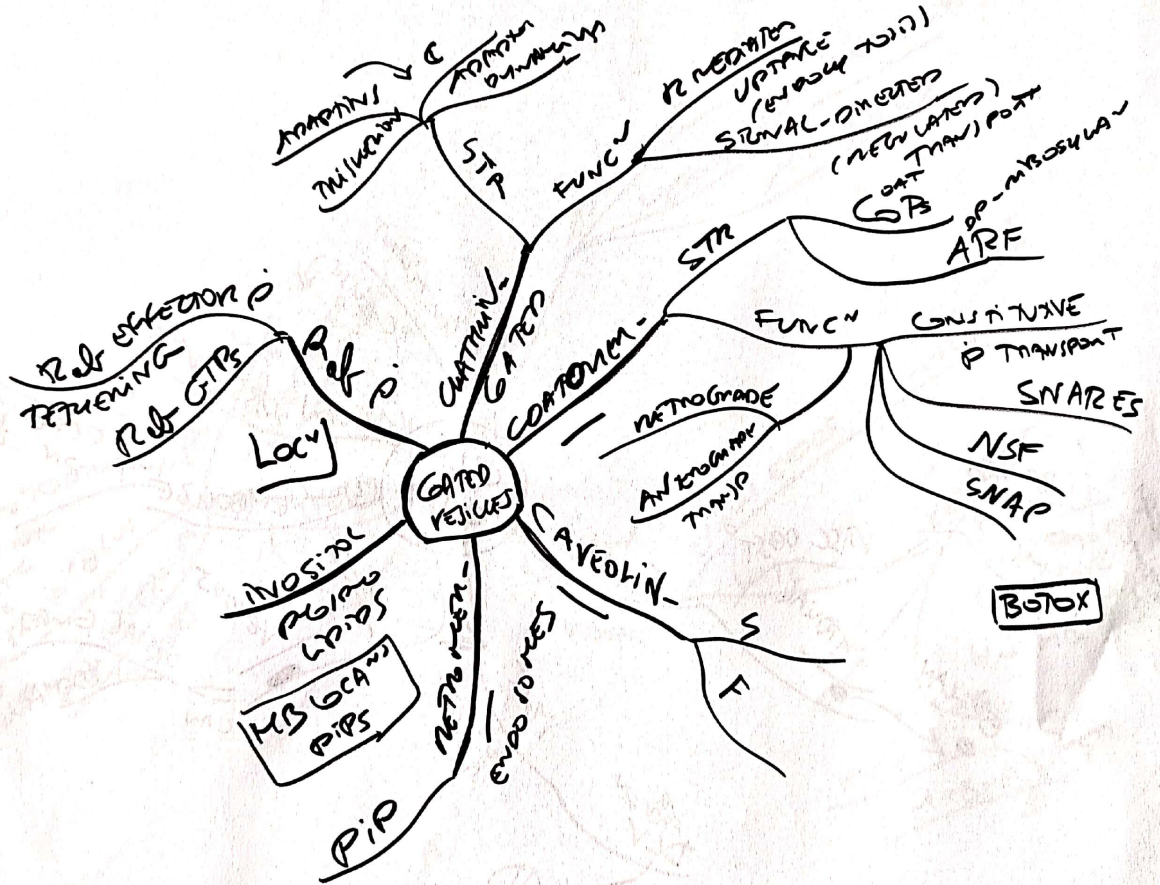 COATED
VESICLES
CLATHRIN-
COATED
STR
ADAPTINS
TRISKELION
ADAPTOR
DYNAMINS
FUNCⁿ
R MEDIATED
UPTAKE
SIGNAL-DIRECTED
(REGULATED)
TRANSPORT
COATOMER-
STR
COAT
COPs
ARF
FUNCⁿ
CONSTITUTIVE
TRANSPORT
SNARES
NSF
SNAP
RETROGRADE
ANTEROGRADE
TRANSP
BOTOX
CAVEOLIN-
S
F
RETROMER-
ENDOSOMES
PiP
iNOSiTOL
LiPiDS
PiPS
LOCⁿ
Rab
Rab EFFECTOR
TETHERING
Rab GTPs